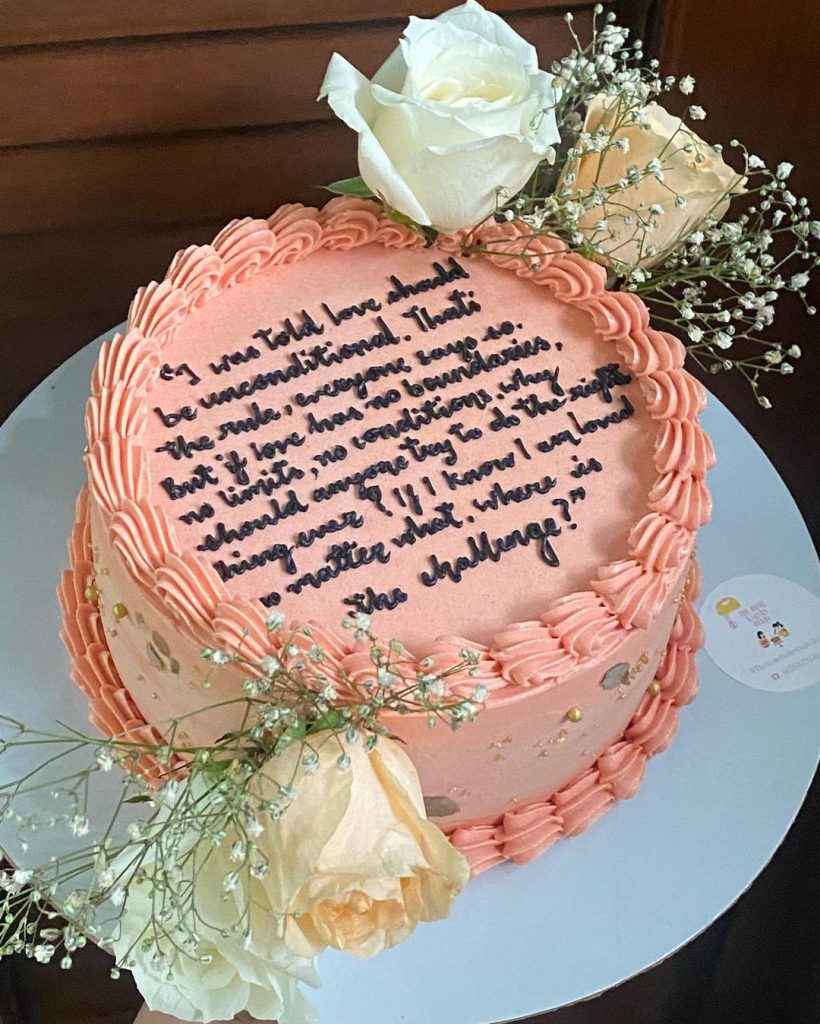 "I was told love should
be unconditional. That's
the rule, everyone says so.
But if love has no boundaries,
no limits, no conditions, why
should anyone try to do the right
thing ever? If I know I am loved
no matter what, where is
the challenge?"